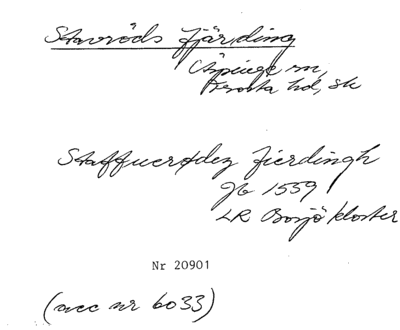 Stavröds fjärding
Äspinge sn,
Frosta hd, Sk
Staffuerødez Fierdingh
Jb 1559
LR Bosjökloster
Nr 20901
(acc nr 6033)